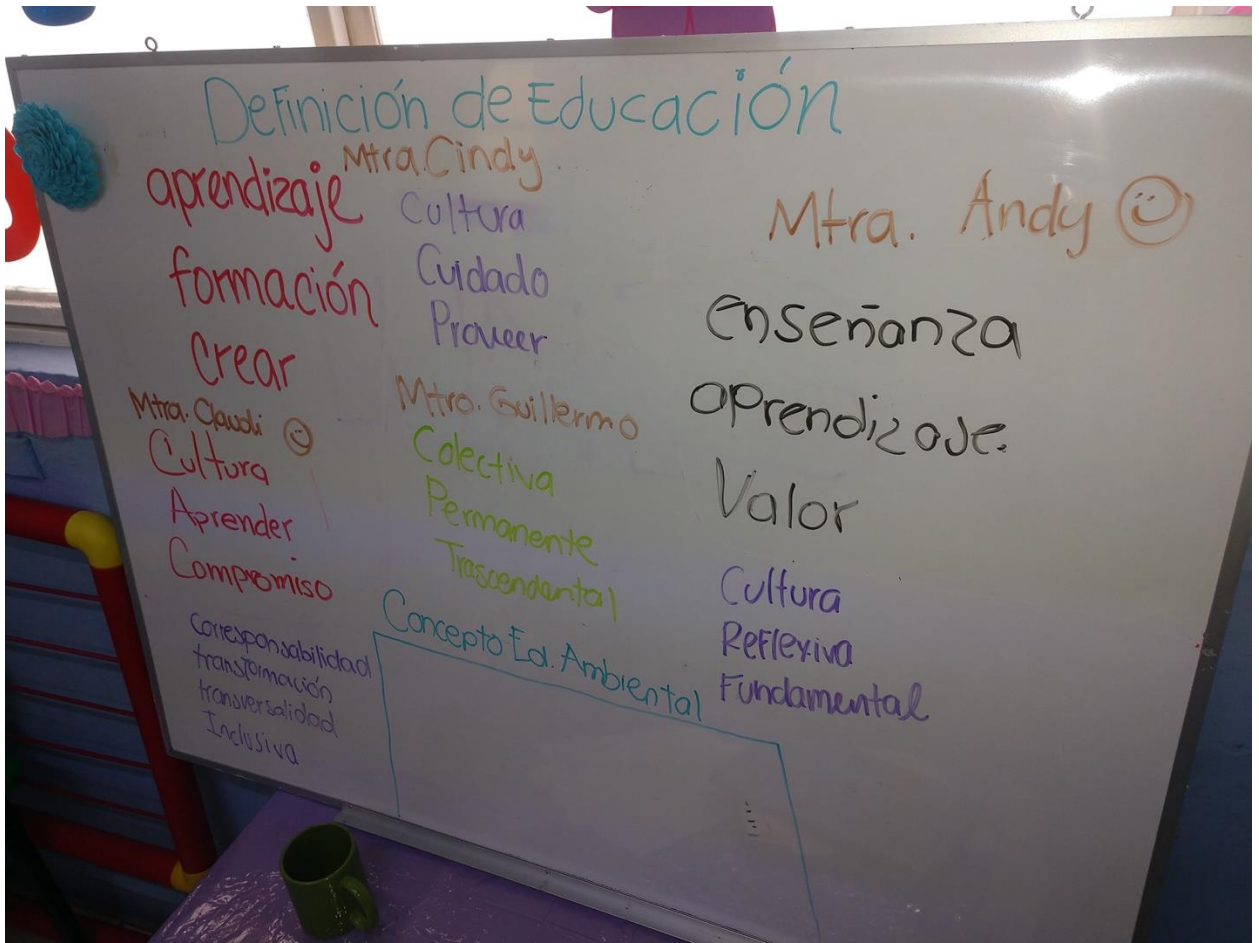 Definición de Educación
aprendizaje
formación
crear
Mtra. Claudi
Cultura
Aprender
Compromiso
Corresponsabilidad
transformación
transversalidad
Inclusiva
Mtra. Cindy
Cultura
Cuidado
Proveer
Mtro. Guillermo
Colectiva
Permanente
Trascendental
Concepto Ed. Ambiental
Mtra. Andy
enseñanza
aprendizaje.
Valor
Cultura
Reflexiva
Fundamental